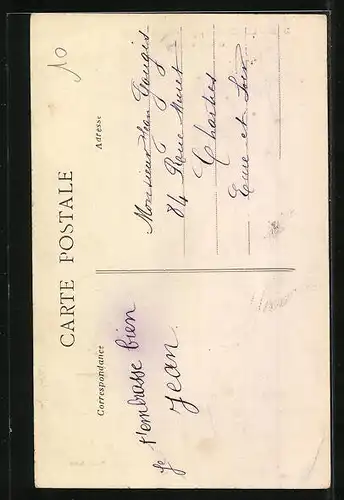 CARTE POSTALE
Correspondance
Adresse
Je t'embrasse bien
Jean
Monsieur Jean Gougis
84 Rue Muret
Chartres
Eure et Loir
10